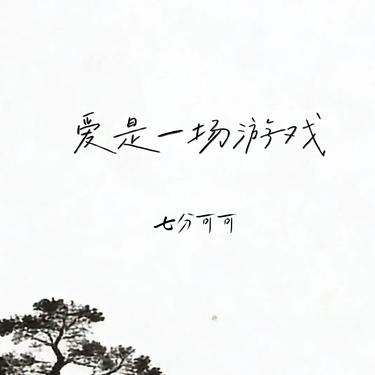 爱是一场游戏
七分可可